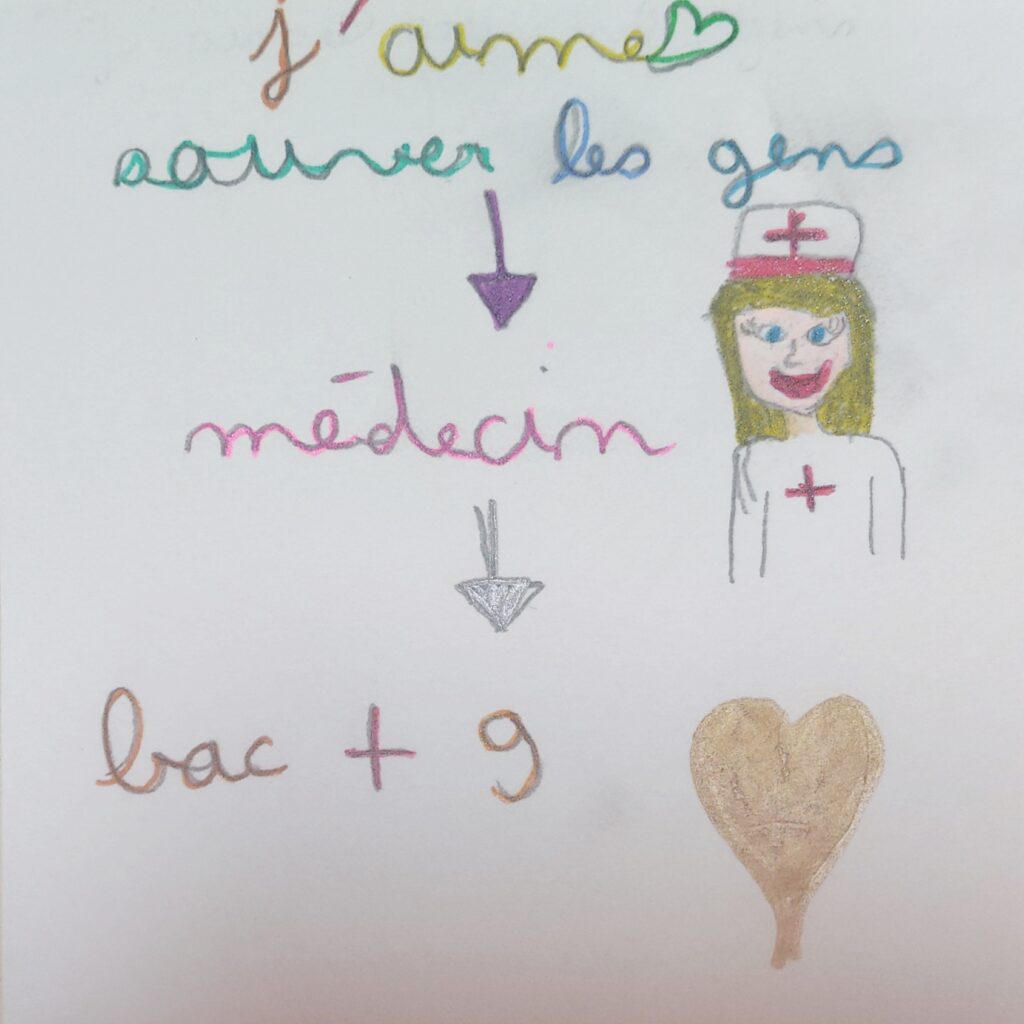 j'aime
sauver les gens
médecin
bac + 9